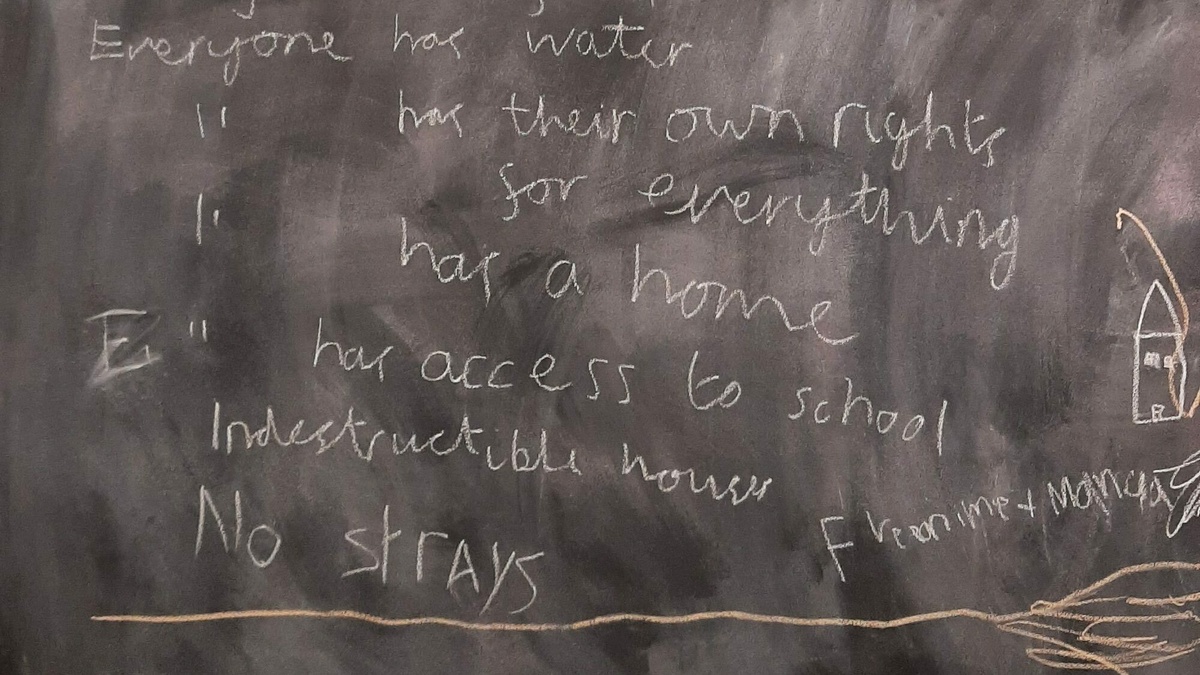 Everyone has water
" has their own rights
for everything
" has a home
E " has access to school
Indestructible houses
No strays
Free anime + Manga